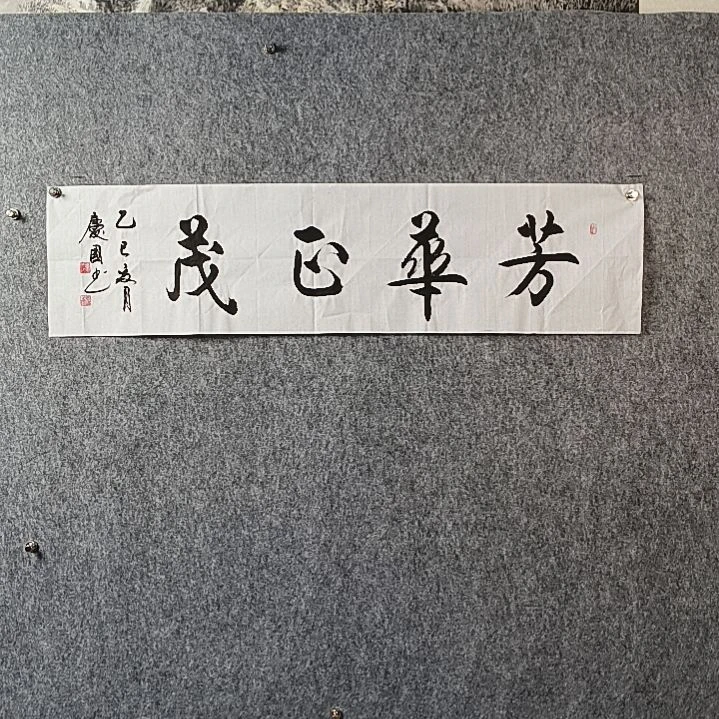 芳華正茂
乙巳夏月
慶國书